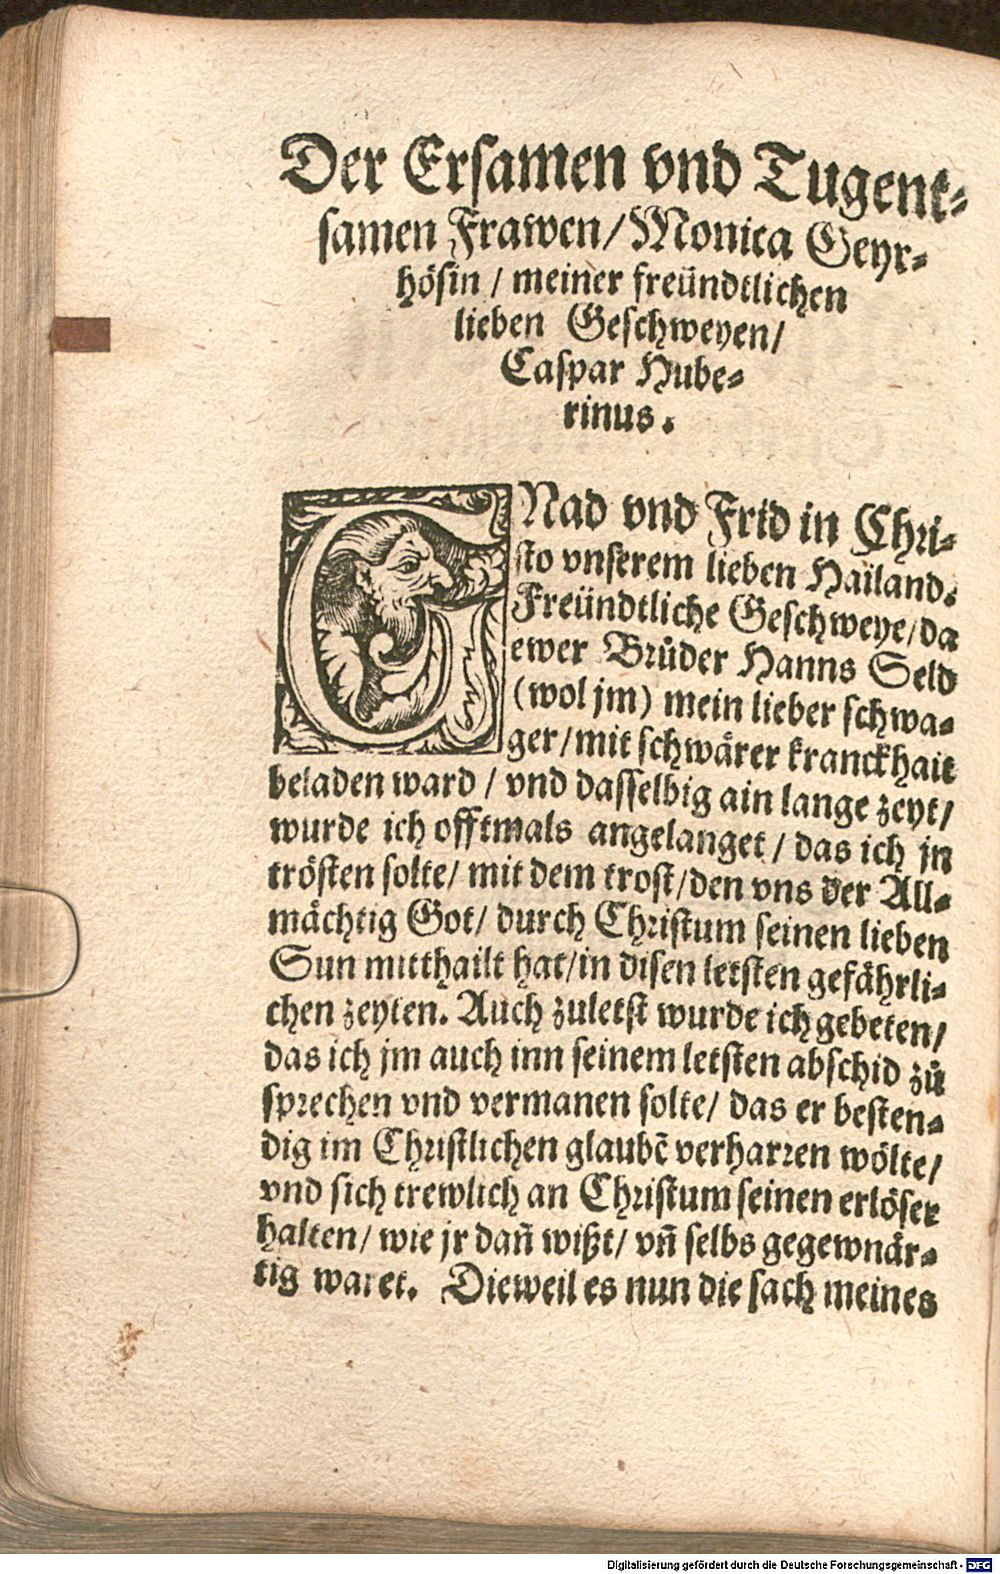 Der Ersamen vnd Tugent-
samen Frawen/ Monica Geyr-
hösin / meiner freündtlichen
lieben Geschweyen/
Caspar Hube-
rinus.
GNad vnd Frid in Chri-
sto vnserem lieben Hailand.
Freündtliche Geschweye/ da
ewer Brůder Hanns Seld
(wol jm) mein lieber schwa-
ger/ mit schwärer kranckhait
beladen ward / vnd dasselbig ain lange zeyt/
wurde ich offtmals angelanget / das ich jn
trösten solte/ mit dem trost/ den vns der All-
mächtig Got/ durch Christum seinen lieben
Sun mitthailt hat/ in disen letsten gefährli-
chen zeyten. Auch zuletst wurde ich gebeten/
das ich jm auch inn seinem letsten abschid zů
sprechen vnd vermanen solte/ das er besten-
dig im Christlichen glaubē verharren wölte/
vnd sich trewlich an Christum seinen erlöser
halten/ wie jr dañ wißt/ vñ selbs gegewnär-
tig waret. Dieweil es nun die sach meines
Digitalisierung gefördert durch die Deutsche Forschungsgemeinschaft - DFG